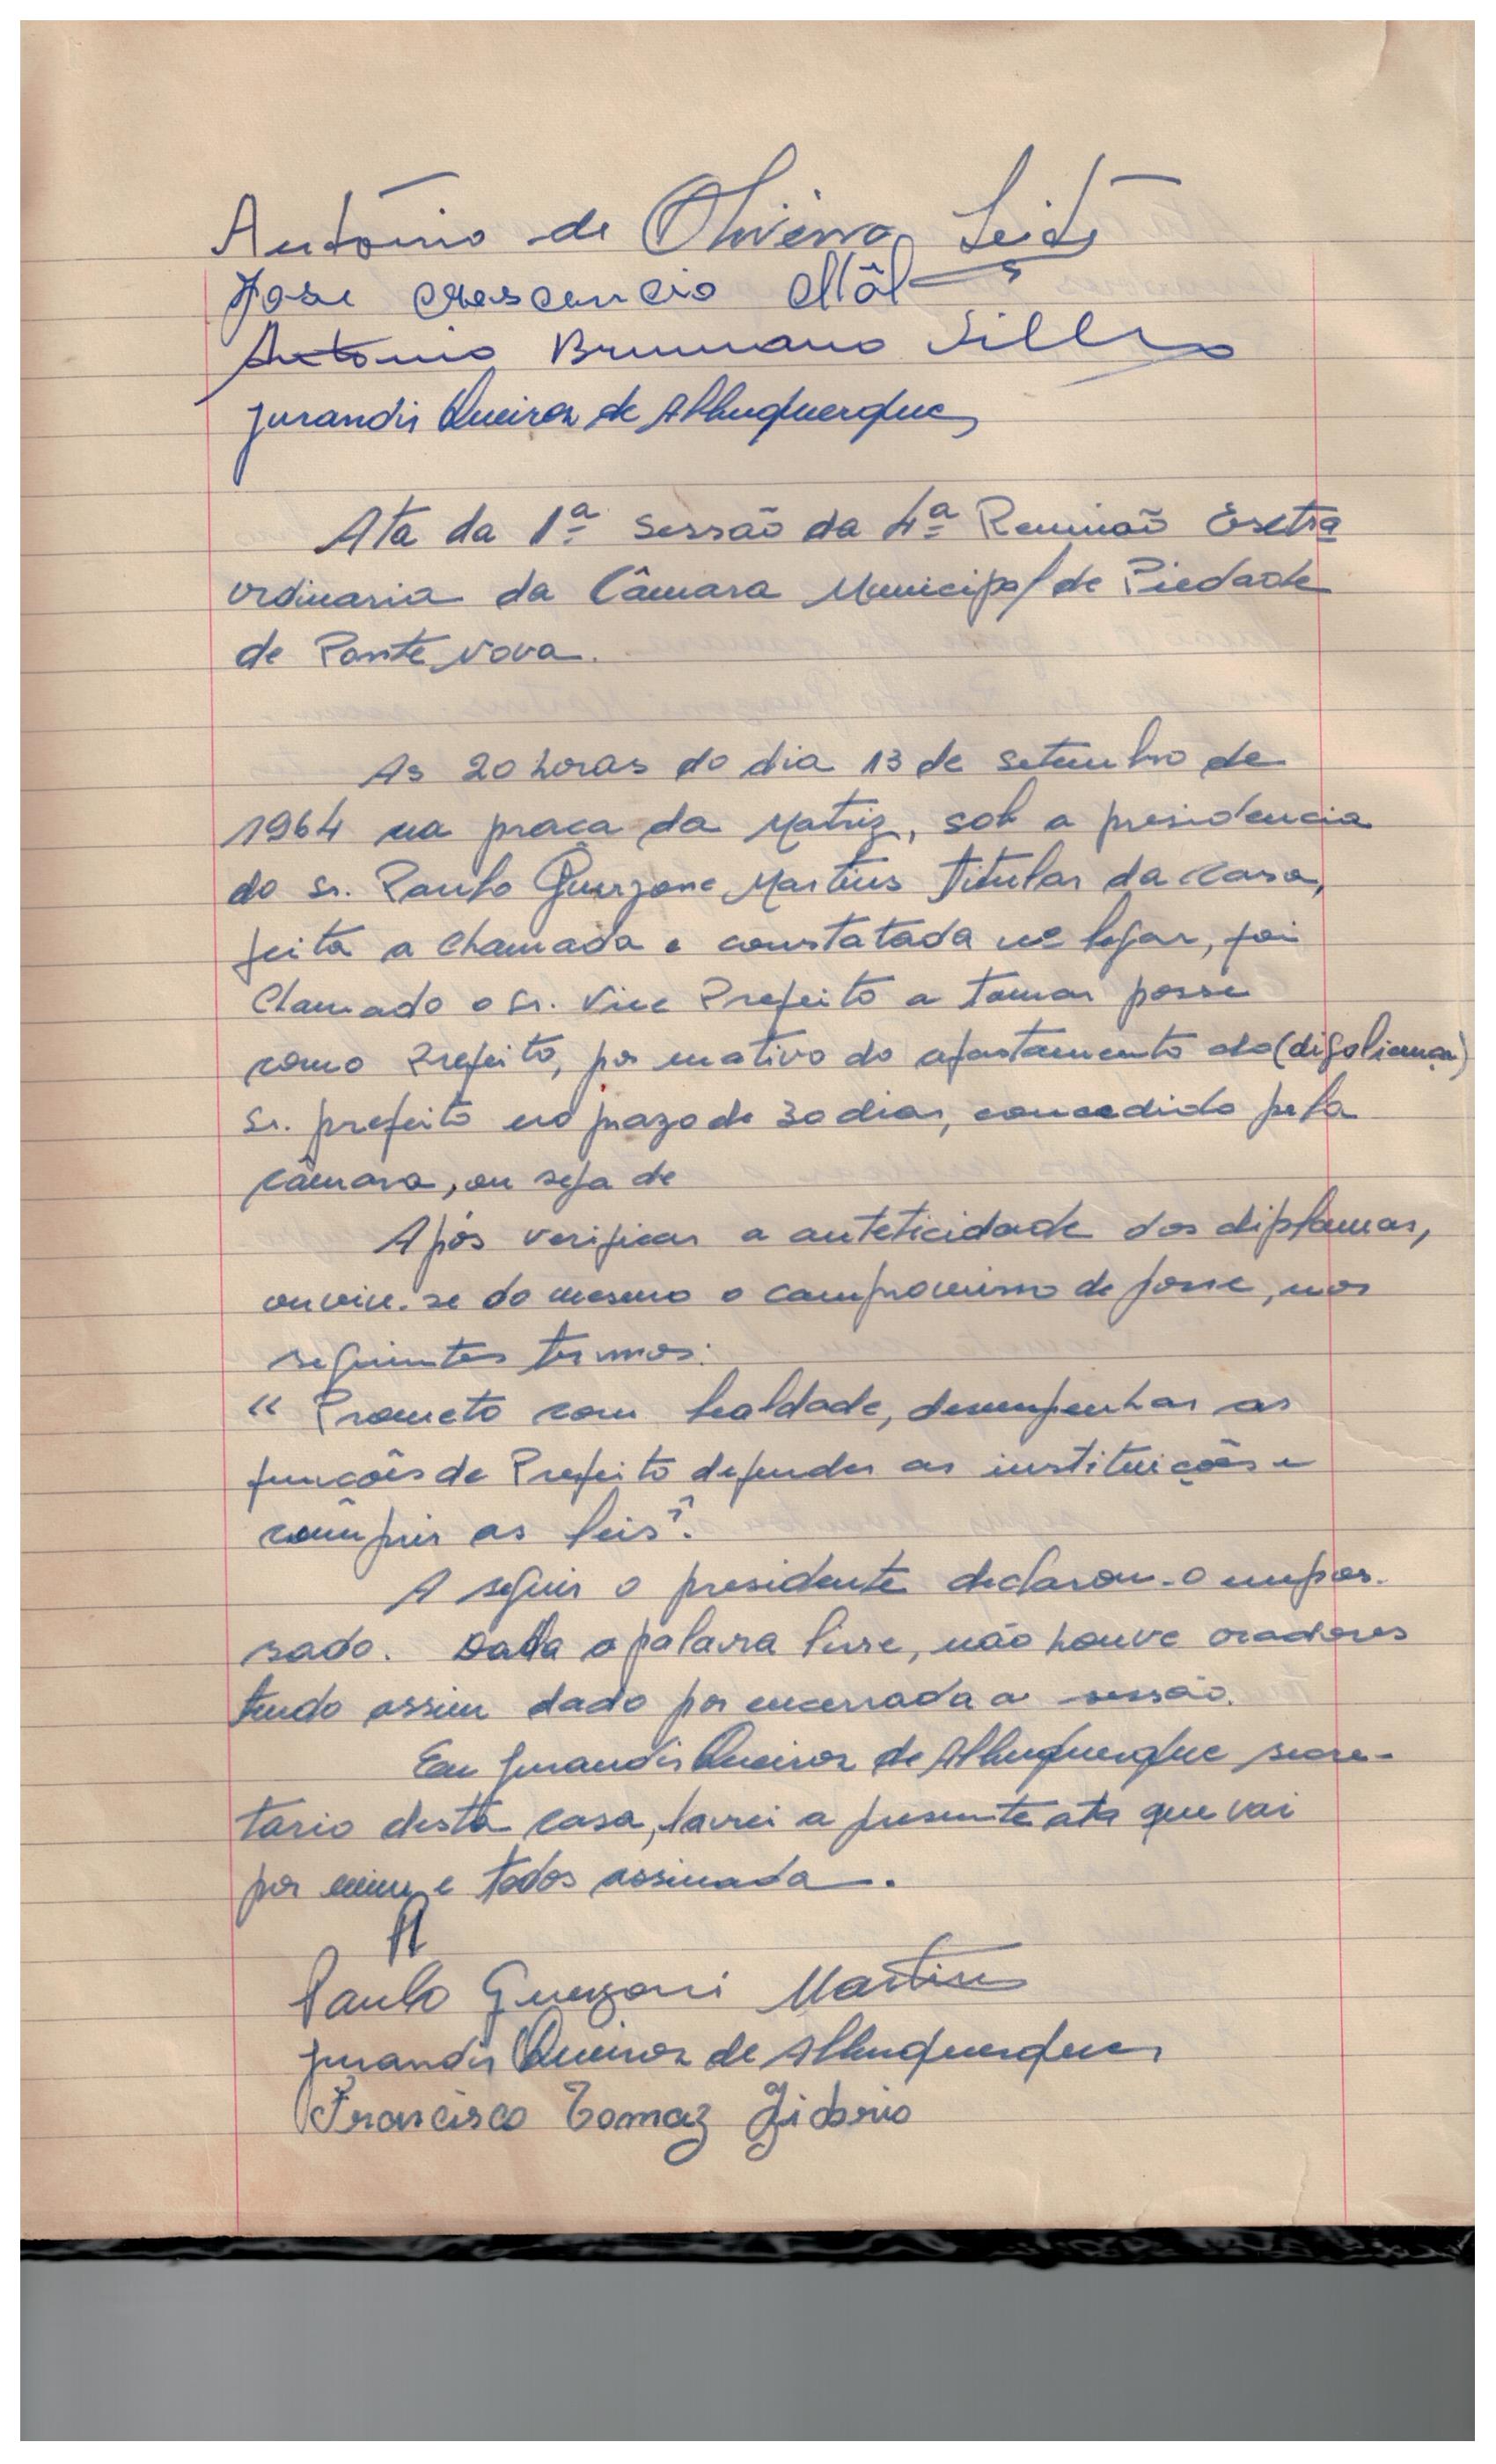 Antônio de Oliveira
Jose crescencio Môl
Antonio Brumano Filho
Jurandir Queiroz de Albuquerque
Ata da 1ª Sessão da 4ª Reuniaõ Esxtra
ordinaria da Câmara Municipal de Piedade
de Ponte Nova.
As 20 horas do dia 13 de setembro de
1964 na praca da Matriz, sob a presidencia
do sr. Paulo Guerzone Martins Titular da casa,
feita a chamada e constatada nº legar, foi
Clamado o sr. Vice Prefeito a tomar posse
como Prefeito, por motivo do afastamento do (digo licença)
Sr. prefeito no prazo de 30 dias, concedido pela
câmara, ou seja de
Após verificar a auteticidade dos diplomas,
ouviu-se do mesmo o compromisso de posse, nos
seguintes termos:
" Prometo com lealdade, desempenhar as
funcões de Prefeito defender as instituições e
cumprir as leis".
A seguir o presidente declarou-o empos-
sado. Dada a palavra livre, não houve oradores
tendo assim dado por encerrada a sessão.
Eu Jurandir Queiroz de Albuquerque secre-
tario desta casa, lavrei a presente ata que vai
por mim e todos assinada.
Paulo Guerzoni Martins
Jurandir Queiroz de Albuquerque
Francisco Tomaz Zidorio